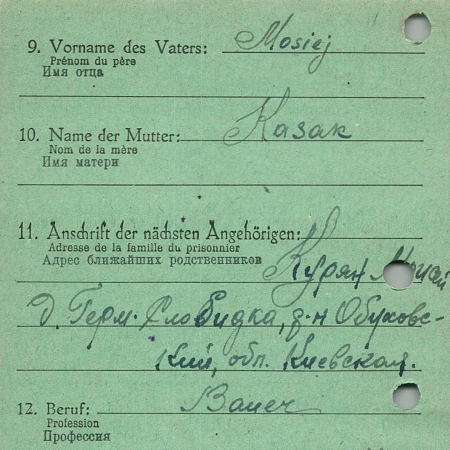 9. Vorname des Vaters: Mosiej
Prénom du père
Имя отца
10. Name der Mutter: Kasak
Nom de la mère
Имя матери
11. Anschrift der nächsten Angehörigen:
Adresse de la famille du prisonnier
Адрес ближайших родственников Курян Моисей
д. Герм. Слобидка, р-н Обуховс-
кий, обл. Киевская.
12. Beruf: Bauer
Profession
Профессия